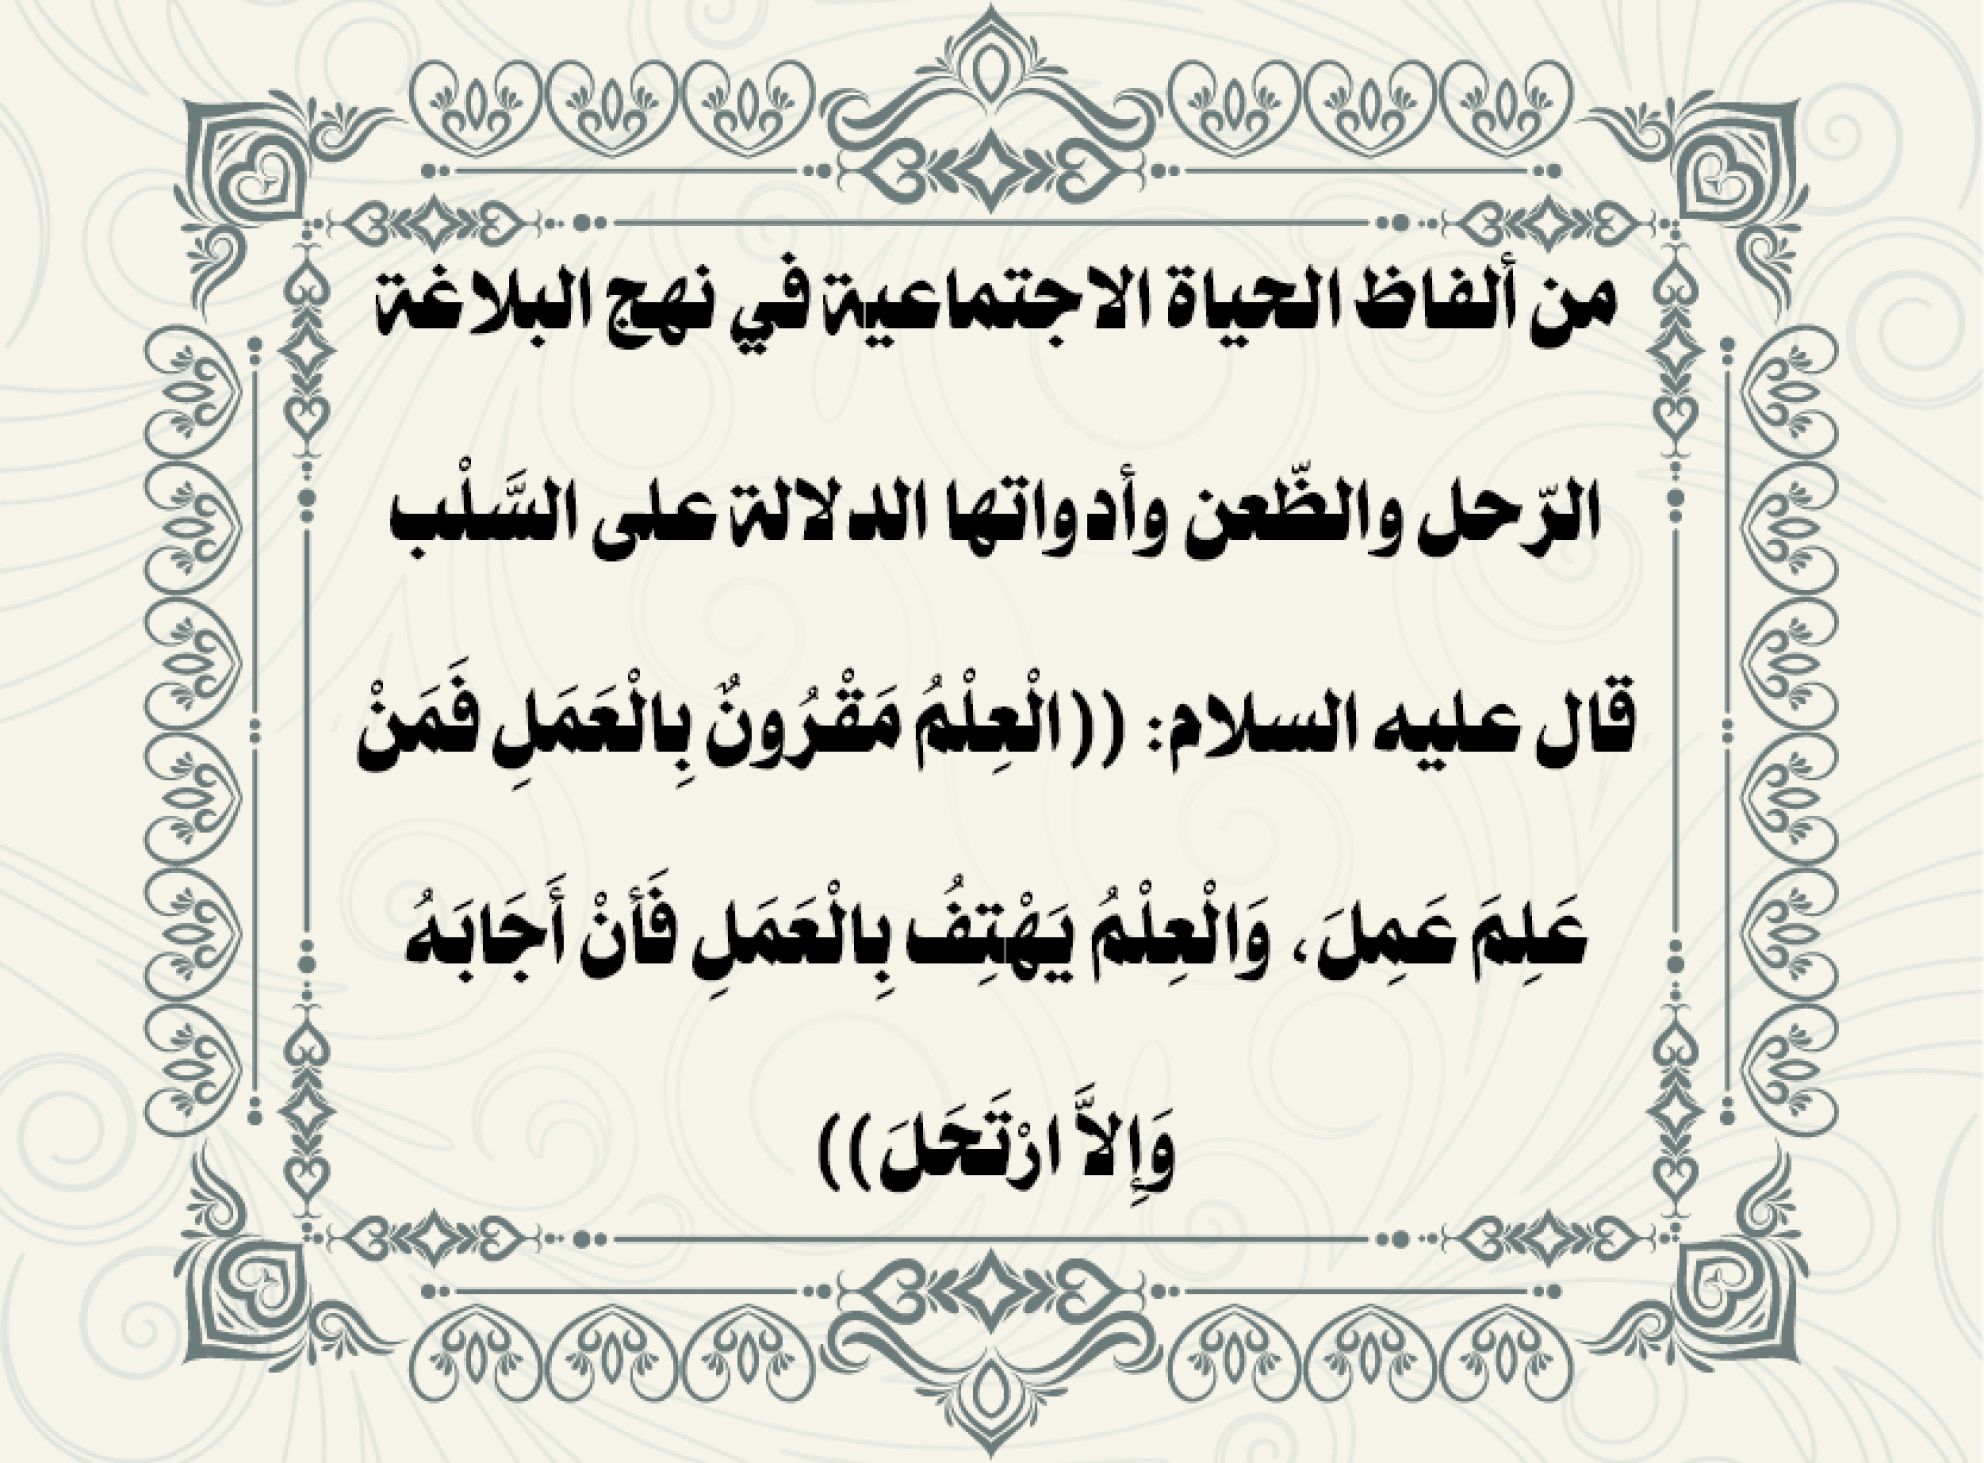 من ألفاظ الحياة الاجتماعية في نهج البلاغة
الرّحل والظّعن وأدواتها الدلالة على السَّلْب
قال عليه السلام: ((الْعِلْمُ مَقْرُونٌ بِالْعَمَلِ فَمَنْ
عَلِمَ عَمِلَ، وَالْعِلْمُ يَهْتِفُ بِالْعَمَلِ فَأنْ أَجَابَهُ
وَإِلاَّ ارْتَحَلَ))